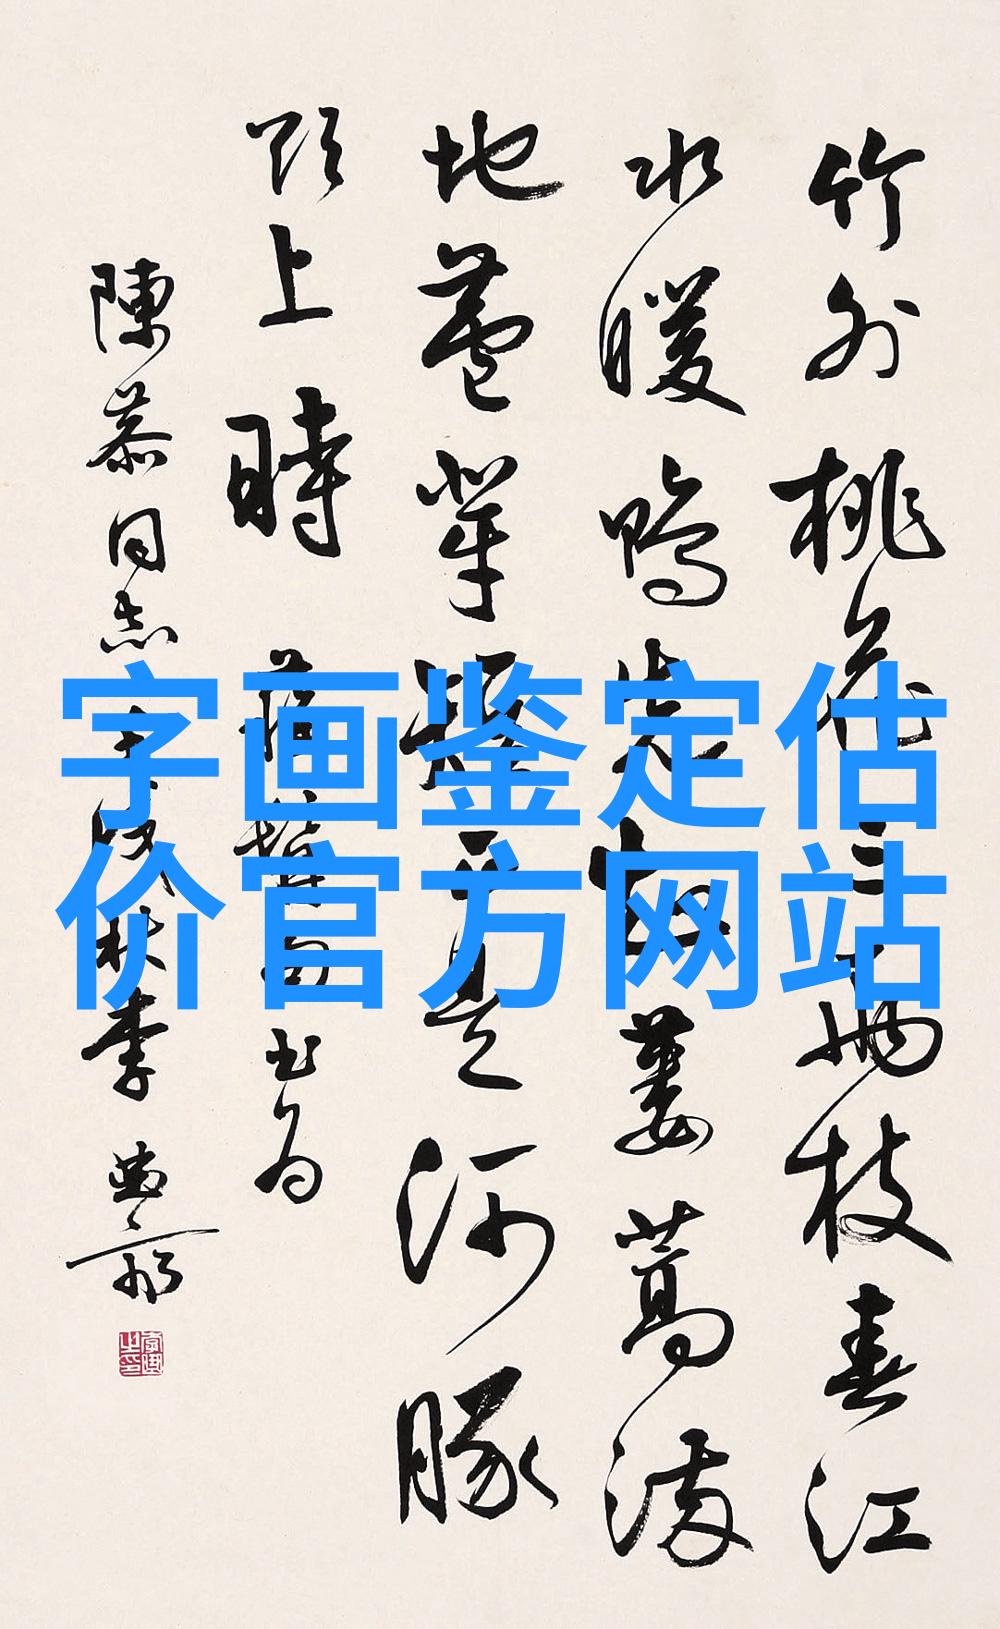 竹外桃花三兩枝春江
水暖鴨先知蔞蒿滿
地蘆芽短正是河豚
欲上時 書为
陳 同志 秋李
字画鉴定估
价官方网站